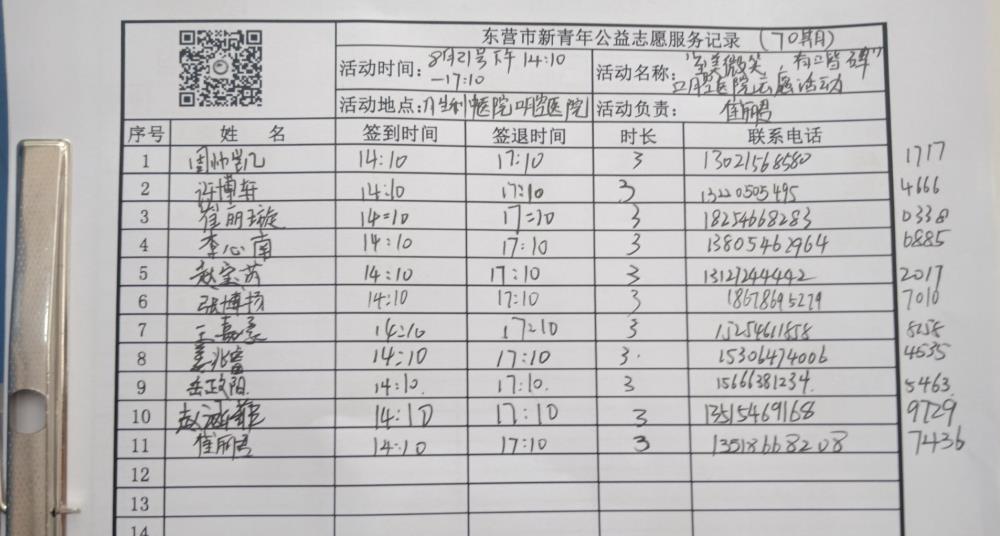 东营市新青年公益志愿服务记录（70期）
活动时间：8月21号下午14:10
—17:10
活动名称："至美微笑，有口皆碑"
口腔医院志愿活动
活动地点：胜利中医院口腔医院 活动负责：崔丽君
序号 姓 名 签到时间 签退时间 时长 联系电话
1 周帅凯 14:10 17:10 3 13021568580 1717
2 许博轩 14:10 17:10 3 13220505495 4666
3 崔丽璇 14:10 17:10 3 18254668283 0338
4 李心南 14:10 17:10 3 13805462964 6885
5 赵宝芮 14:10 17:10 3 13127244442 2017
6 张博扬 14:10 17:10 3 18678695279 7010
7 14:10 17:10 3 15254611858 8258
8 14:10 17:10 3 15306474006 4535
9 岳政阳 14:10 17:10 3 15666381234 5463
10 赵涵菲 14:10 17:10 3 13515469168 9729
11 崔丽君 14:10 17:10 3 13518668208 7436
12
13
14